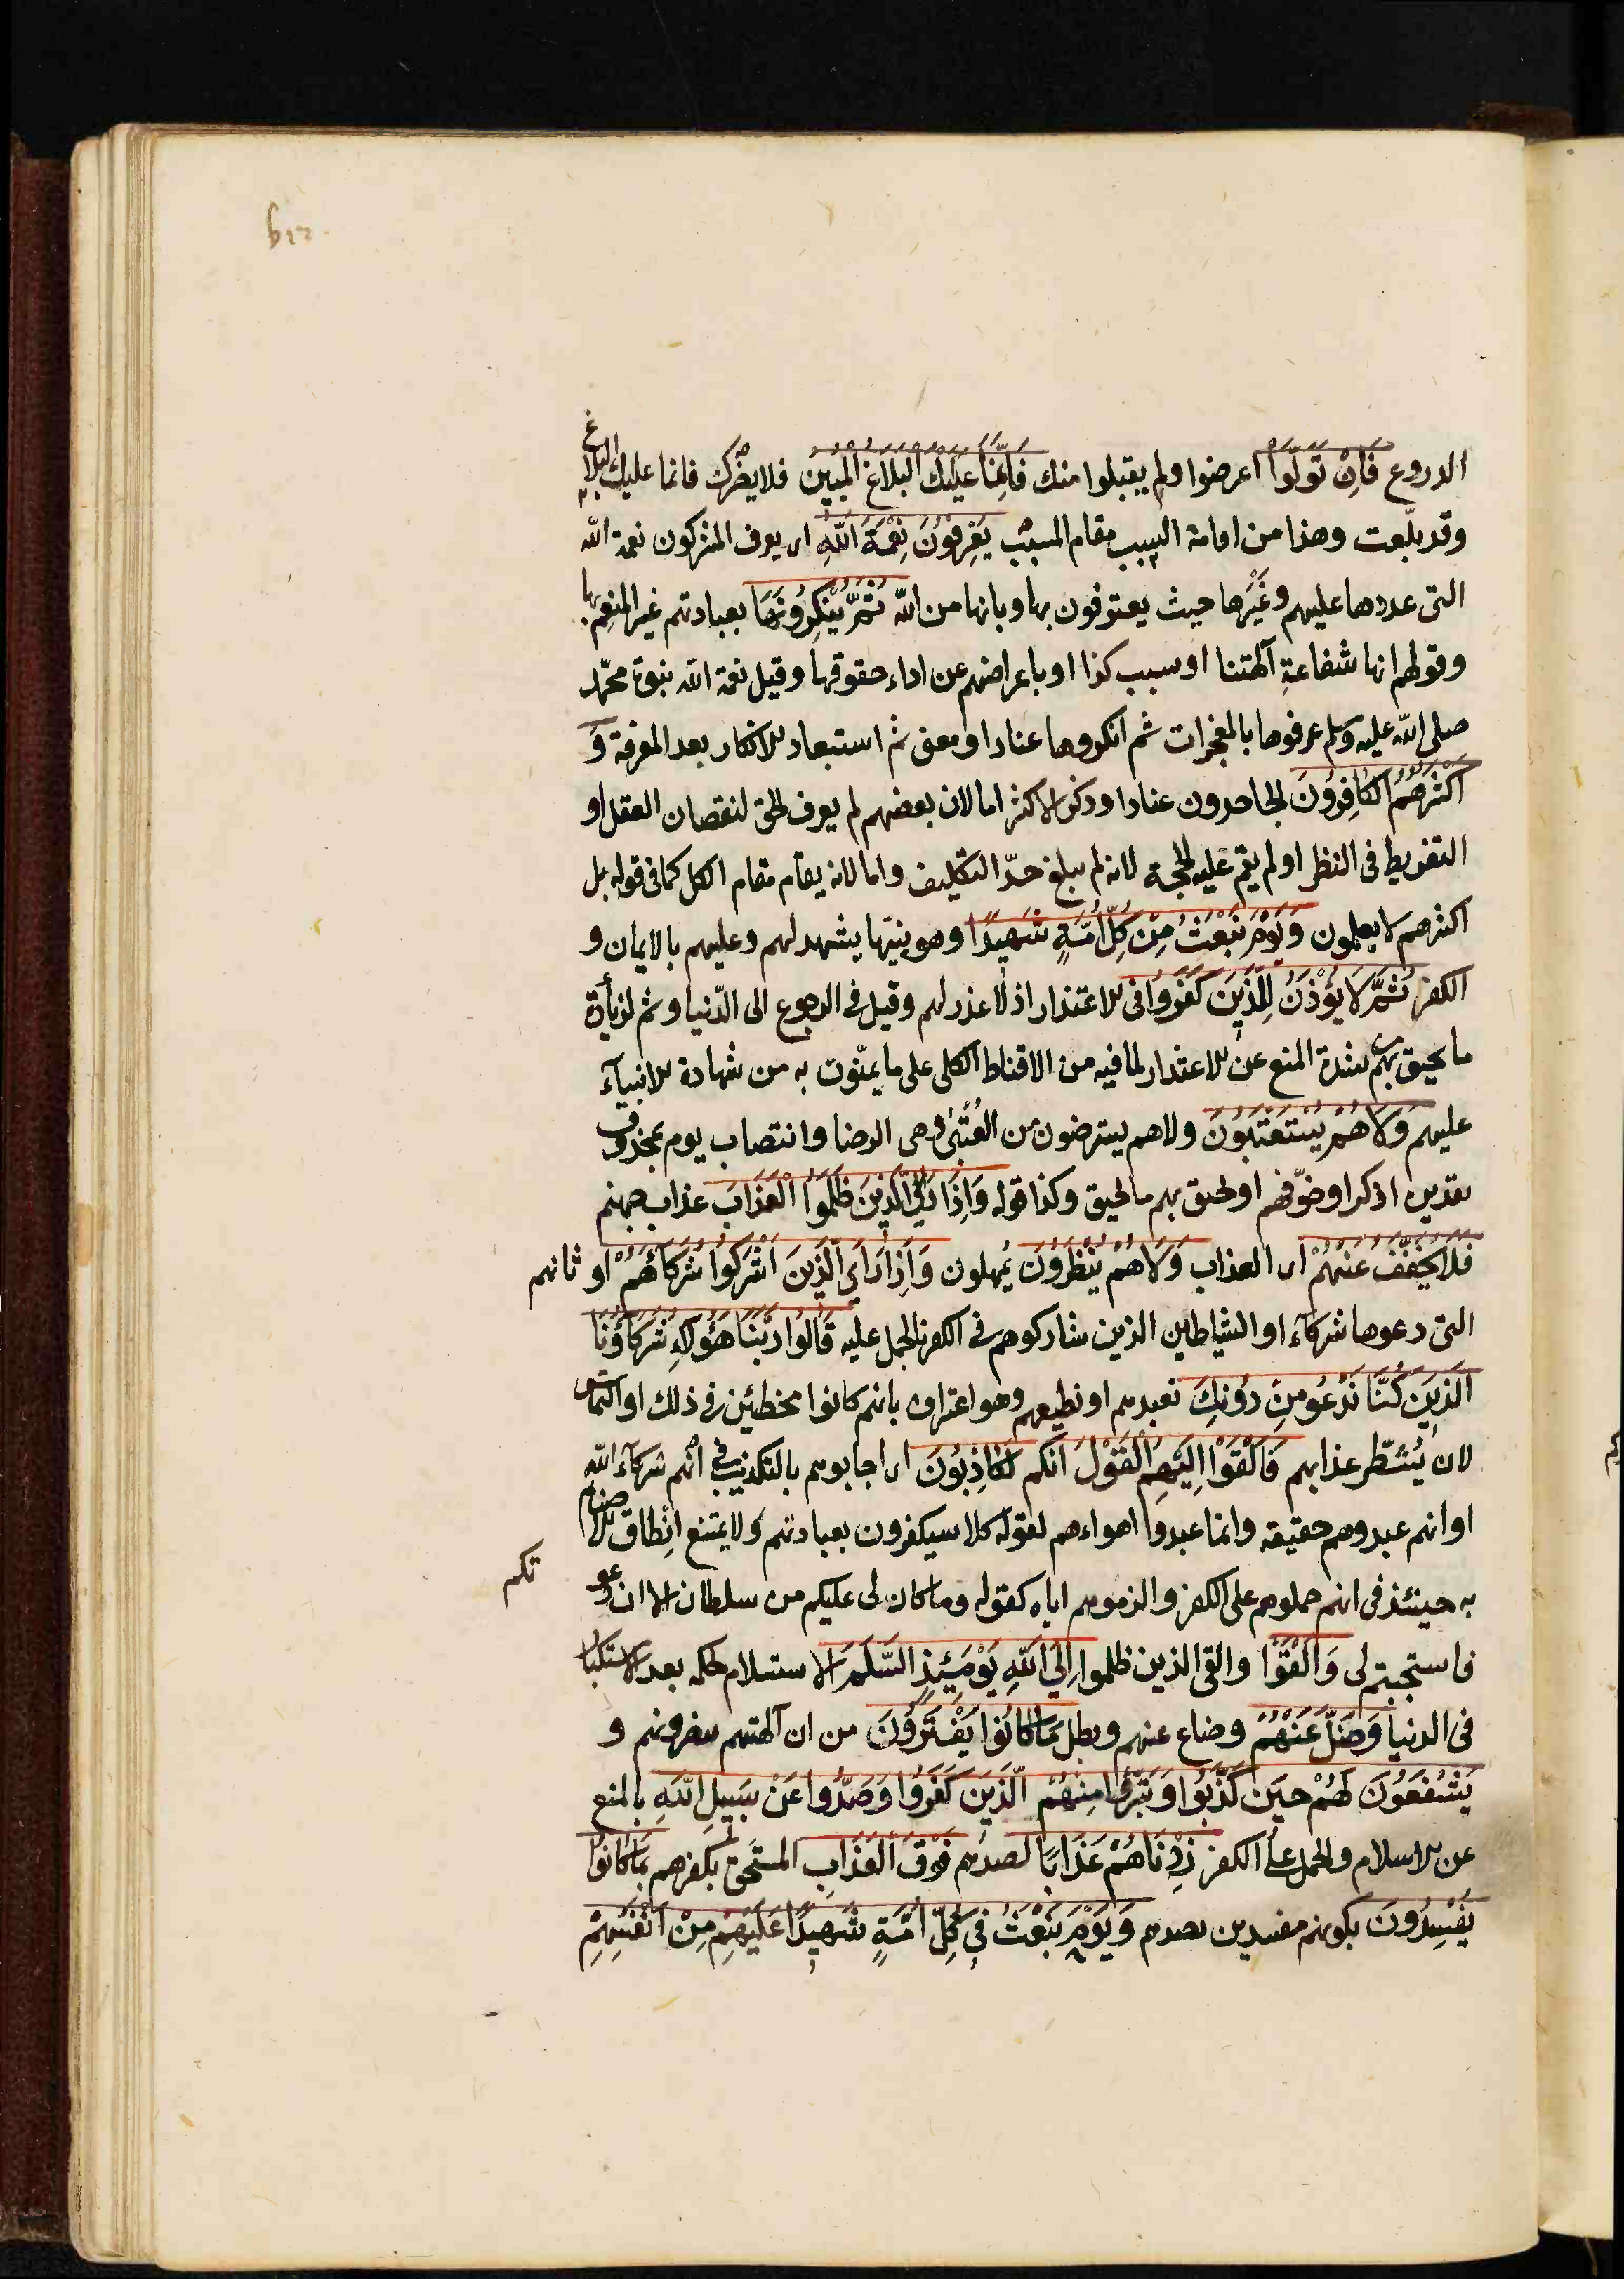 الدروع فَاِنْ تَوَلَّوْا اعرضوا ولم يقبلوا منك فَاِنَّمَا عَلَيْكَ الْبَلَاغُ الْمُبِينُ فلا يضرّك فانما عليك البلاغ
وقد بلّغت وهذا من اقامة السبب مقام المسبب يَعْرِفُونَ نِعْمَةَ اللّهِ اى يعرف المشركون نعمة اللّه
التى عددها عليهم وغَيْرها حيث يعترفون بها وبانها من اللّه ثُمَّ يُنْكِرُونَهَا بعبادتهم غير المنعِم بها
وقولهم انها شفاعةِ آلهتنا او سبب كذا او باعراضهم عن اداء حقوقها وقيل نعمة اللّه نبوة محمّد
صلى اللّه عليه وسلم عرفوها بالمعجزات ثم انكروها عنادا ومعنى ثم استبعاد الانكار بعد المعرفة وَ
اَكْثَرُهُمُ الْكَافِرُونَ الجاحدون عنادا وذكر الاكثر اما لان بعضهم لم يعرف الحق لنقصان العقل او
التفريط فى النظر او لم يقم عليه الحجة لانه لم يبلغ حدّ التكليف واما لانه يقام مقام الكل كما فى قوله بل
اكثرهم لا يعلمون وَيَوْمَ نَبْعَثُ مِنْ كِلِّ اُمَّةٍ شَهِيدًا وهو نبيّها يشهد لهم وعليهم بالايمان و
الكفر ثُمَّ لَا يُؤْذَنُ لِلَّذِينَ كَفَرُوا فى الاعتذار اذ لا عذر لهم وقيل فى الرجوع الى الدّنيا وثم لزيادة
ما يحيق بهم شدة المنع عن الاعتذار لما فيه من الاقناط الكلى على ما يمنّون به من شهادة الانبيآء
عليهم وَلَا هُمْ يُسْتَعْتَبُونَ ولا هم يسترضون من العُتْبىٰ وهى الرضا وانتصاب يوم بمحذوف
تقديره اذكر او خوّفهم او يحيق بهم ما يحيق وكذا قوله وَاِذَا رَأَى الَّذِينَ ظَلَمُوا الْعَذَابَ عذاب جهنم
فَلَا يُخَفَّفُ عَنْهُمْ اى العذاب وَلَا هُمْ يُنْظَرُونَ يُمهلون وَاِذَا رَاَى الَّذِينَ اَشْرَكُوا شُرَكَاءَهُمْ اوثانهم
التى دعوها شركآء او الشياطين الذين شاركوهم فى الكفر بالحمل عليه قَالُوا رَبَّنَا هَؤُلَاءِ شُرَكَاؤُنَا
الَّذِينَ كُنَّا نَدْعُو مِنْ دُونِكَ نعبدهم او نطيعهم وهو اعتراف بانهم كانوا مخطئين فى ذلك او التماس
لان يُشَطّر عذابهم فَاَلْقَوْا اِلَيْهِمُ الْقَوْلَ انكم لَكَاذِبُونَ اى اجابوهم بالتكذيب فى أنهم شركآء اللّه
او انهم عبدوهم حقيقه وانما عبدوا اهواءهم لقوله كلا سيكفرون بعبادتهم ولا يمتنع انِطاق الاصنام
به حينئذ فى انهم حملوهم على الكفر والزموهم اياه كقوله وما كان لى عليكم من سلطان الا ان دعو
تكم
فاستجبتم لى وَاَلْقَوْا والقى الذين ظلموا اِلَى اللّهِ يَوْمَئِذٍ السَّلَمَ الاستسلام لحكمه بعد الاستكبار
فى الدنيا وَضَلَّ عَنْهُمْ وضاع عنهم وبطل مَا كَانُوا يَفْتَرُونَ من ان آلهتهم ينصرونهم و
يَشْفَعُونَ لَهُمْ حِينَ كَذَّبُوا وَتَبَرَّؤُا مِنْهُمْ الَّذِينَ كَفَرُوا وَصَدُّوا عَنْ سَبِيلِ اللّهِ بالمنع
عن الاسلام والحمل على الكفر زِدْنَاهُمْ عَذَابًا لصدهم فَوْقَ الْعَذَابِ المستَحَق بكفرهم بِمَا كَانُوا
يُفْسِدُونَ بكونهم مفسدين بصدهم وَيَوْمَ نَبْعَثُ فِى كِلِّ اُمَّةٍ شَهِيدًا عَلَيْهِمْ مِنْ اَنْفُسِهِمْ